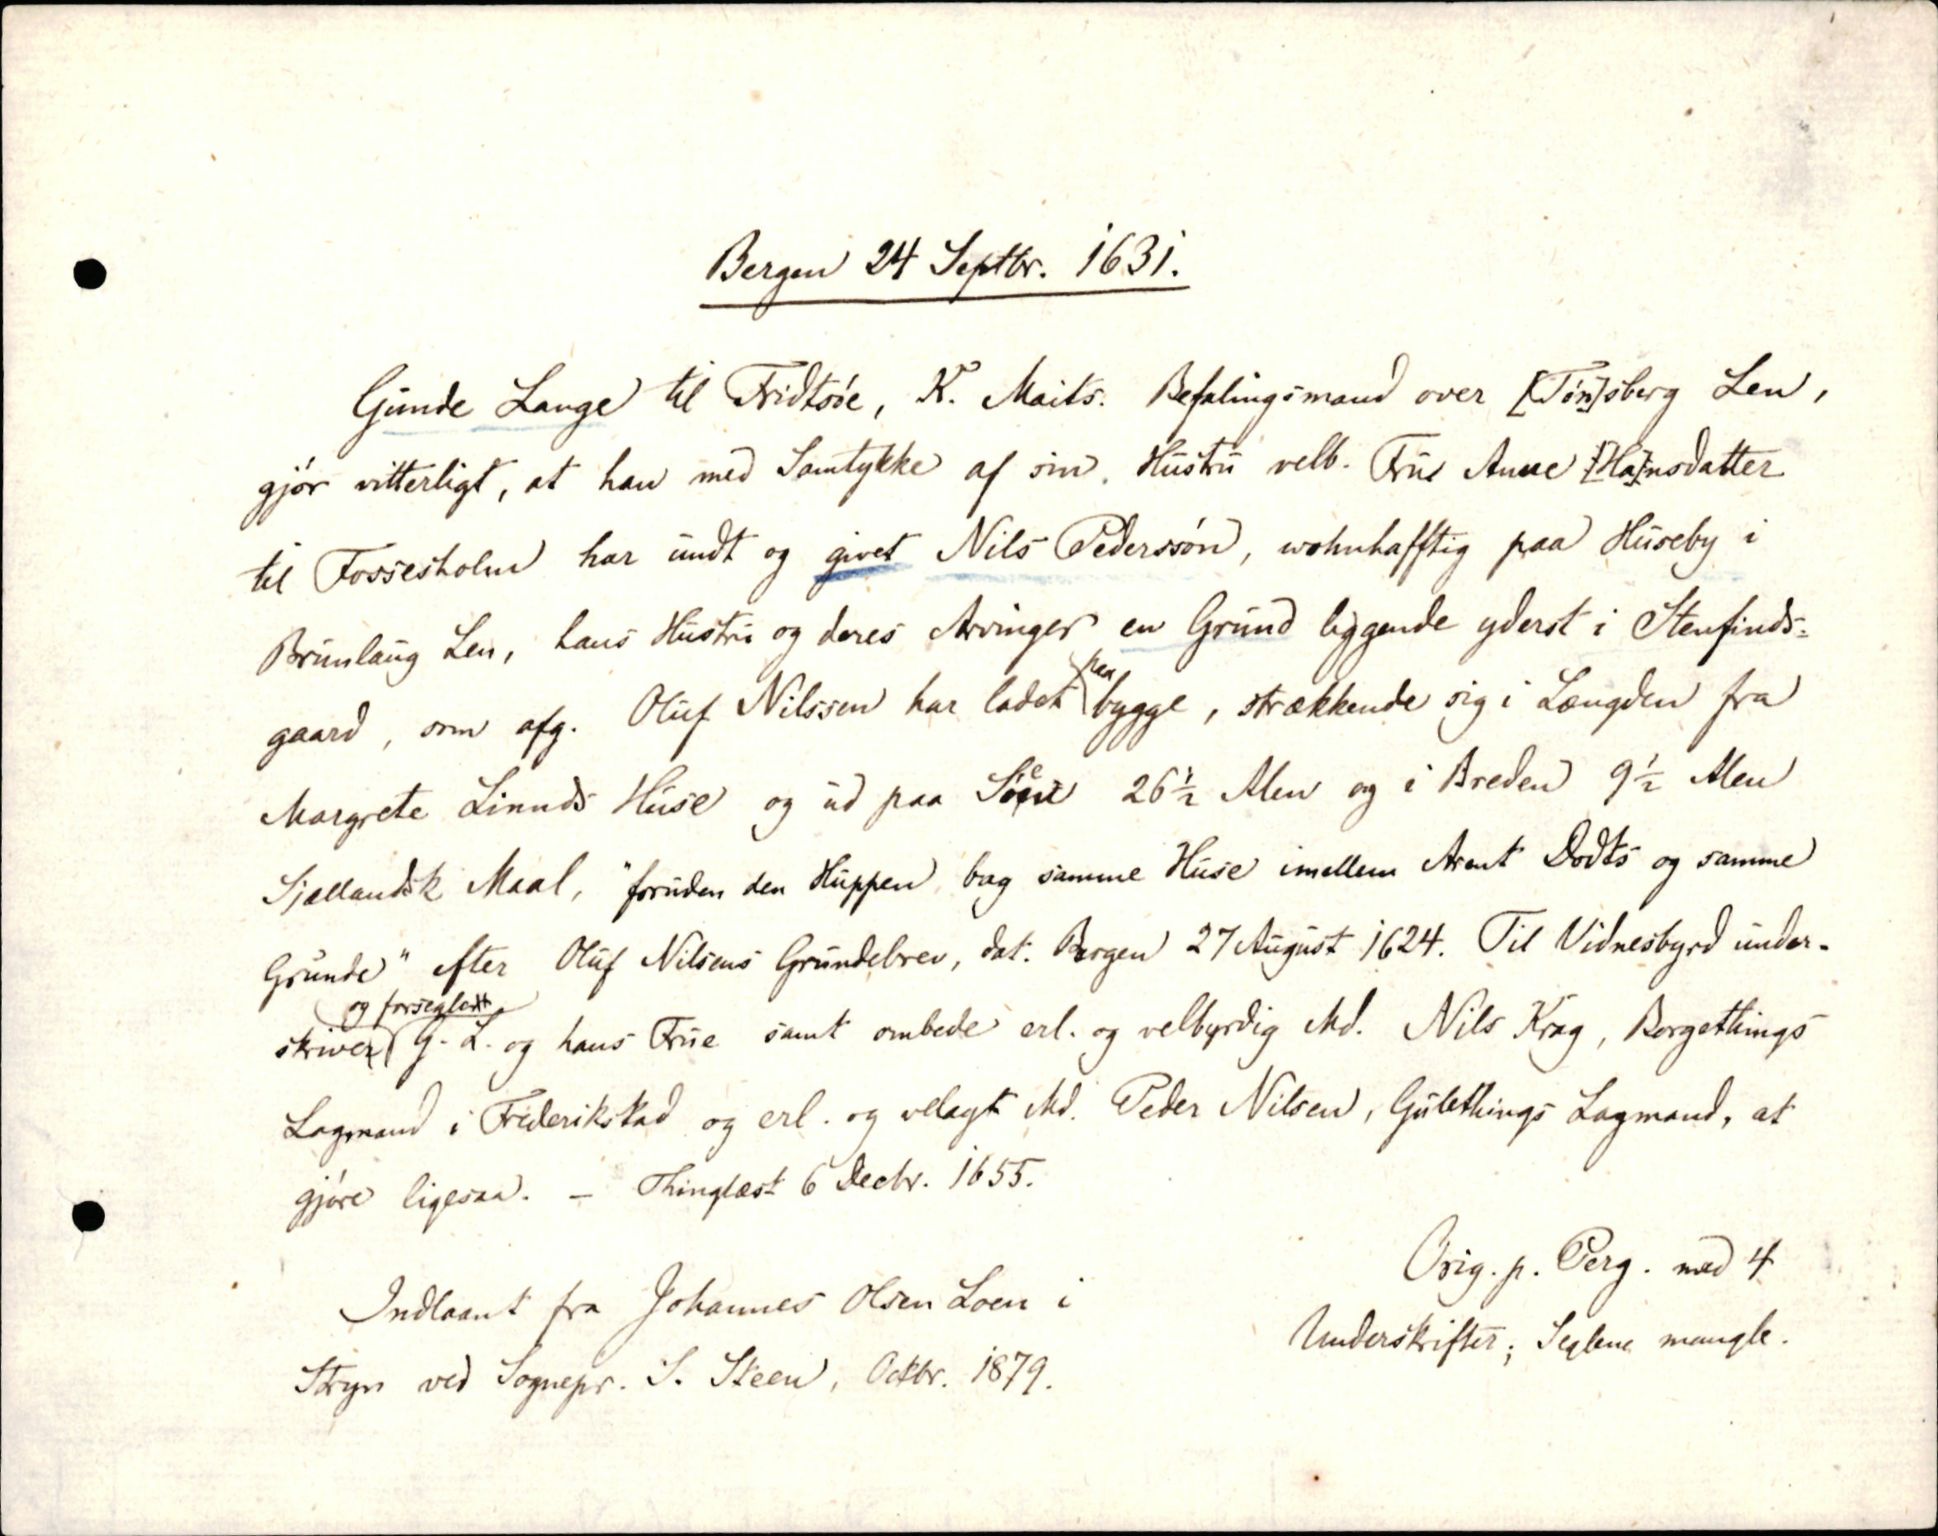 Bergen 24 Septbr. 1631.
Gunde Lange til Fridtsøe, K. Maits. Befalingsmand over [Tøn]sberg Len,
gjør vitterligt, at han med Samtykke af sin Hustru velb. Frue Anne [Ha]nsdatter
til Fossesholm har undt og givet Nils Pederssøn, wohnhafftig paa Huseby i
Brunlaug Len, hans Hustru og deres Arvinger en Grund liggende yderst i Stenfinds-
gaard, som afg. Oluf Nilssen har ladet paa bygge, strækkende sig i Længden fra
Margrete Linnds Huse og ud paa Søen 26½ Alen og i Breden 9½ Alen
Sjællandsk Maal, "foruden den Huppen bag samme Huse imellem Arent Dodts og samme
Grunde" efter Oluf Nilsens Grundebrev, dat. Bergen 27 August 1624. Til Vidnesbyrd under-
og forsegler
skriver G. L. og hans Frue samt ombede erl. og velbyrdig Md. Nils Krag, Borgethings
Lagmand i Frederikstad og erl. og velagt Md. Peder Nilsen, Gulethings Lagmand, at
gjøre ligesaa. – Thinglæst 6 Decbr. 1655.
Orig. p. Perg. med 4
Underskrifter; Seglene mangle.
Indlaant fra Johannes Olsen Loen i
Stryn ved Sognepr. S. Steen, Octbr. 1879.